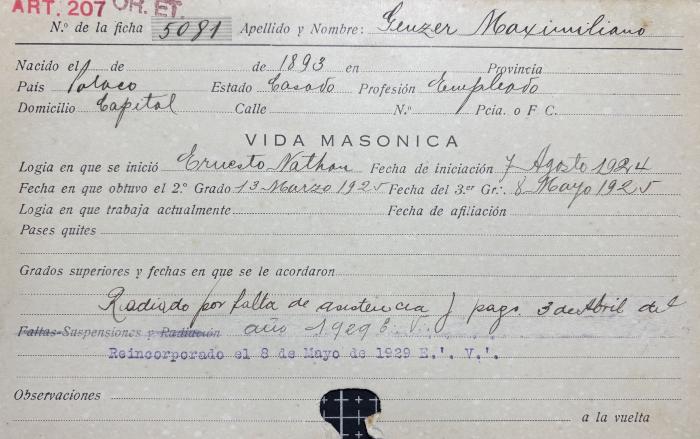 ART. 207 OR. ET.
N.º de la ficha 5091 Apellido y Nombre: Genzer Maximiliano
Nacido el de de 1893 en Provincia
País Polaco Estado Casado Profesión Empleado
Domicilio Capital Calle N.º Pcia. o F C.
VIDA MASONICA
Logia en que se inició Ernesto Nathan Fecha de iniciación 7 Agosto 1924
Fecha en que obtuvo el 2.º Grado 13 Marzo 1925 Fecha del 3.er Gr.: 8 Mayo 1925
Logia en que trabaja actualmente Fecha de afiliación
Pases quites
Grados superiores y fechas en que se le acordaron
Radiado por falta de asistencia y pago 3 de Abril del
Faltas-Suspensiones y Radiación año 1929
Reincorporado el 8 de Mayo de 1929 E.'. V.'.
Observaciones
a la vuelta